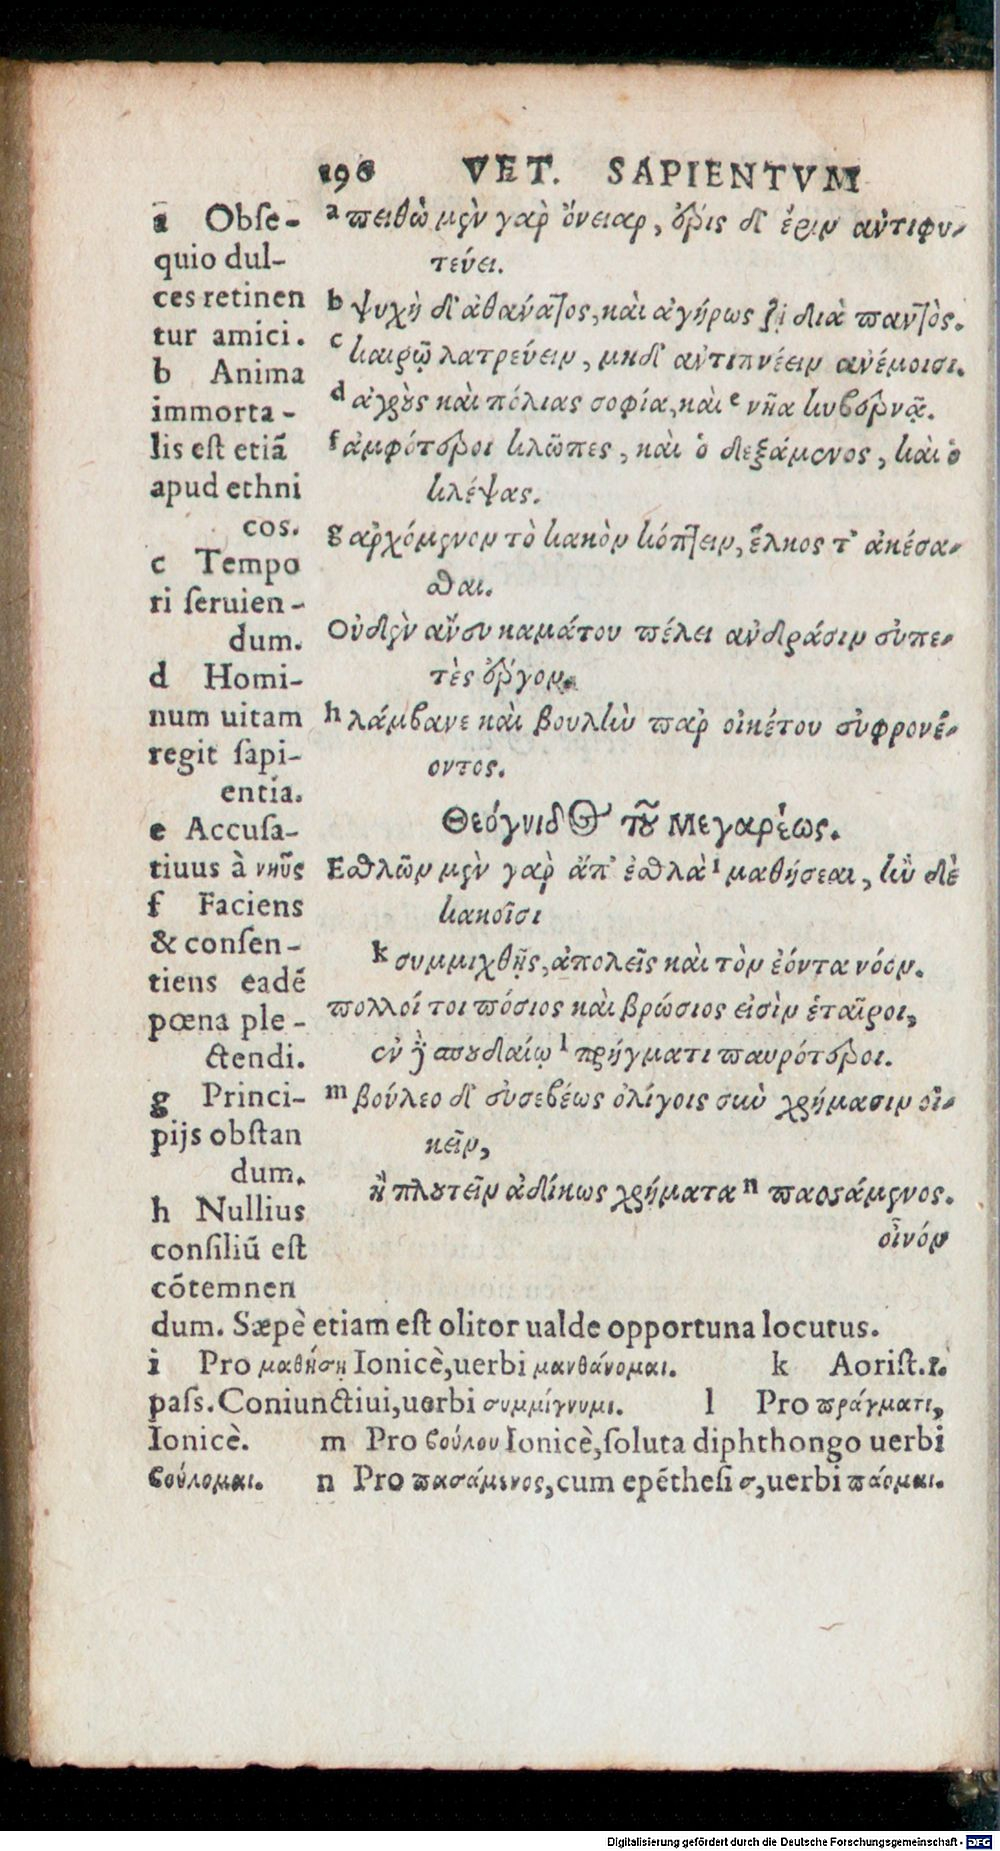 196 VET. SAPIENTVM
a Obse-
quio dul-
ces retinen
tur amici.
b Anima
immorta-
lis est etiã
apud ethni
cos.
c Tempo
ri seruien-
dum.
d Homi-
num uitam
regit sapi-
entia.
e Accusa-
tiuus à νηῦς
f Faciens
& consen-
tiens eadẽ
pœna ple-
ctendi.
g Princi-
pijs obstan
dum.
h Nullius
consiliũ est
cõtemnen
dum. Sæpè etiam est olitor ualde opportuna locutus.
a πειθὼ μὲν γὰρ ὄνειαρ, ἔρις δ' ἔριν ἀντιφυ-
τεύει.
b ψυχὴ δ' ἀθανάτος, καὶ ἀγήρως ζῇ διὰ παντὸς.
c καιρῷ λατρεύειν, μηδ' ἀντιπνέειν ἀνέμοισι.
d ἀγροὺς καὶ πόλιας σοφία, καὶ e νῆα κυβερνᾷ.
f ἀμφότεροι κλῶπες, καὶ ὁ δεξάμενος, καὶ ὁ
κλέψας.
g ἀρχόμενον τὸ κακὸν κόπτειν, ἕλκος τ' ἀκέσα-
σθαι.
Οὐδὲν ἄνευ καμάτου πέλει ἀνδράσιν εὐπε-
τὲς ἔργον.
h λάμβανε καὶ βουλὴν παρ οἰκέτου εὐφρονέ-
οντος.
Θεόγνιδος τοῦ Μεγαρέως.
Εσθλῶν μὲν γὰρ ἄπ' ἐσθλὰ i μαθήσεαι, ἢν δὲ
κακοῖσι
k συμμιχθῇς, ἀπολεῖς καὶ τὸν ἐόντα νόον.
πολλοί τοι πόσιος καὶ βρώσιος εἰσὶν ἑταῖροι,
ἐν δὲ σπουδαίῳ l πρήγματι παυρότεροι.
m βούλεο δ' εὐσεβέως ὀλίγοις σὺν χρήμασιν οἰ-
κεῖν,
ἢ πλουτεῖν ἀδίκως χρήματα n πασσάμενος.
οἶνόν
i Pro μαθήσῃ Ionicè, uerbi μανθάνομαι. k Aorist.1.
pass. Coniunctiui, uerbi συμμίγνυμι. l Pro πράγματι,
Ionicè. m Pro βούλου Ionicè, soluta diphthongo uerbi
βούλομαι. n Pro πασάμενος, cum epẽthesi σ, uerbi πάομαι.
Digitalisierung gefördert durch die Deutsche Forschungsgemeinschaft - DFG